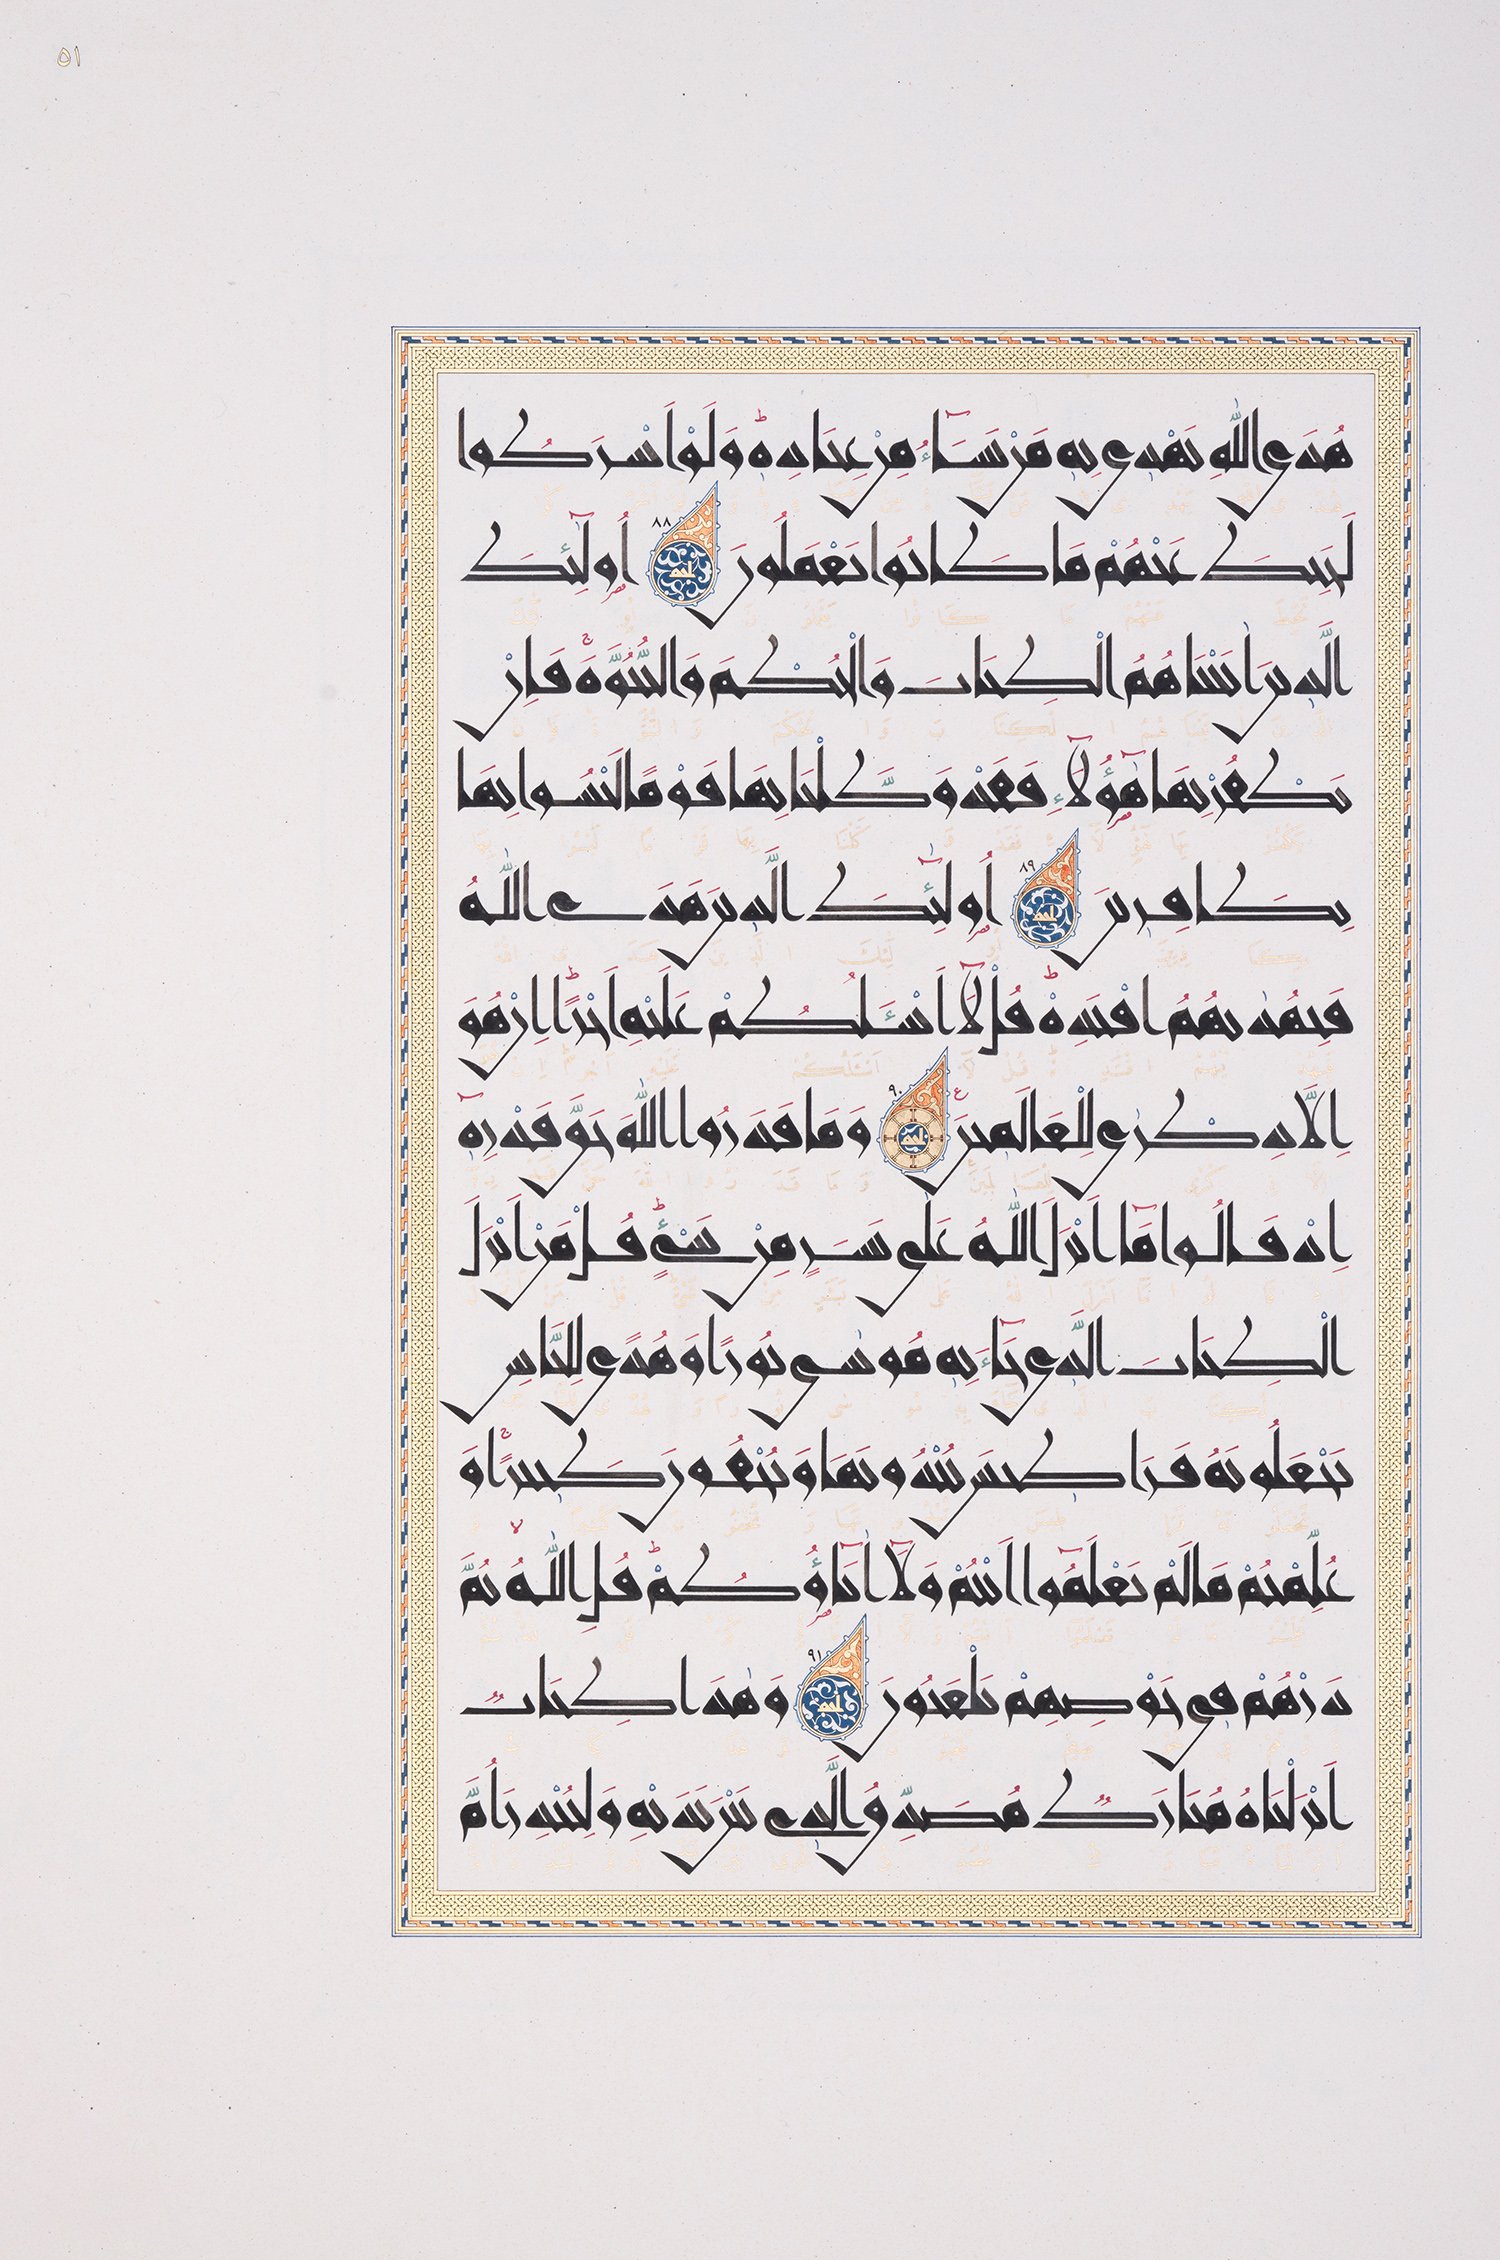 ٥١
هُدَى اللّٰهِ يَهْدٖى بِهٖ مَنْ يَشَٓاءُ مِنْ عِبَادِهٖؕ وَلَوْ اَشْرَكُوا
لَحَبِطَ عَنْهُمْ مَا كَانُوا يَعْمَلُونَ ٨٨ اُولٰٓئِكَ
الَّذٖينَ اٰتَيْنَاهُمُ الْكِتَابَ وَالْحُكْمَ وَالنُّبُوَّةَۚ فَاِنْ
يَكْفُرْ بِهَا هٰٓؤُلَٓاءِ فَقَدْ وَكَّلْنَا بِهَا قَوْمًا لَيْسُوا بِهَا
بِكَافِرٖينَ ٨٩ اُولٰٓئِكَ الَّذٖينَ هَدَى اللّٰهُ
فَبِهُدٰيهُمُ اقْتَدِهْؕ قُلْ لَٓا اَسْـَٔلُكُمْ عَلَيْهِ اَجْرًاؕ اِنْ هُوَ
اِلَّا ذِكْرٰى لِلْعَالَمٖينَ ٩٠ وَمَا قَدَرُوا اللّٰهَ حَقَّ قَدْرِهٖٓ
اِذْ قَالُوا مَٓا اَنْزَلَ اللّٰهُ عَلٰى بَشَرٍ مِنْ شَيْءٍؕ قُلْ مَنْ اَنْزَلَ
الْكِتَابَ الَّذٖى جَٓاءَ بِهٖ مُوسٰى نُورًا وَهُدًى لِلنَّاسِ
تَجْعَلُونَهُ قَرَاطٖيسَ تُبْدُونَهَا وَتُخْفُونَ كَثٖيرًاۚ وَ
عُلِّمْتُمْ مَا لَمْ تَعْلَمُٓوا اَنْتُمْ وَلَٓا اٰبَٓاؤُكُمْؕ قُلِ اللّٰهُۙ ثُمَّ
ذَرْهُمْ فٖى خَوْضِهِمْ يَلْعَبُونَ ٩١ وَهٰذَا كِتَابٌ
اَنْزَلْنَاهُ مُبَارَكٌ مُصَدِّقُ الَّذٖى بَيْنَ يَدَيْهِ وَلِتُنْذِرَ اُمَّ